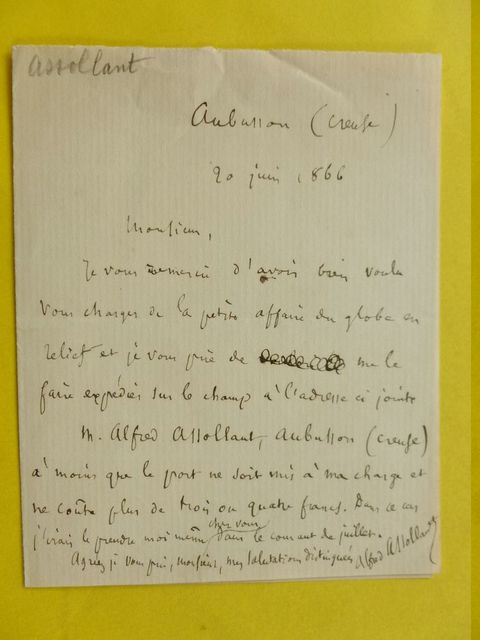 Assollant
Aubusson (Creuse)
20 juin 1866
Monsieur,
Je vous remercie d'avoir bien voulu
vous charger de la petite affaire du globe en
relief et je vous prie de me le
faire expédier sur le champ à l'adresse ci jointe
M. Alfred Assollant, Aubusson (Creuse)
à moins que le port ne soit mis à ma charge et
ne coûte plus de trois ou quatre francs. Dans ce cas
chez vous
j'irais le prendre moi même dans le courant de juillet.
Agréez je vous prie, monsieur, mes salutations distinguées Alfred Assollant